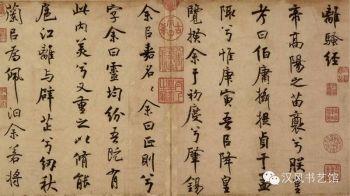 離騷經
帝高陽之苗裔兮朕皇
考曰伯庸攝提貞于孟
陬兮惟庚寅吾以降皇
覽揆余于初度兮肇錫
余以嘉名〻余曰正則兮
字余曰靈均紛吾既有
此内美兮又重之以脩能
扈江離與辟芷兮紉秋
蘭以爲佩汩余若將
汉风书艺馆